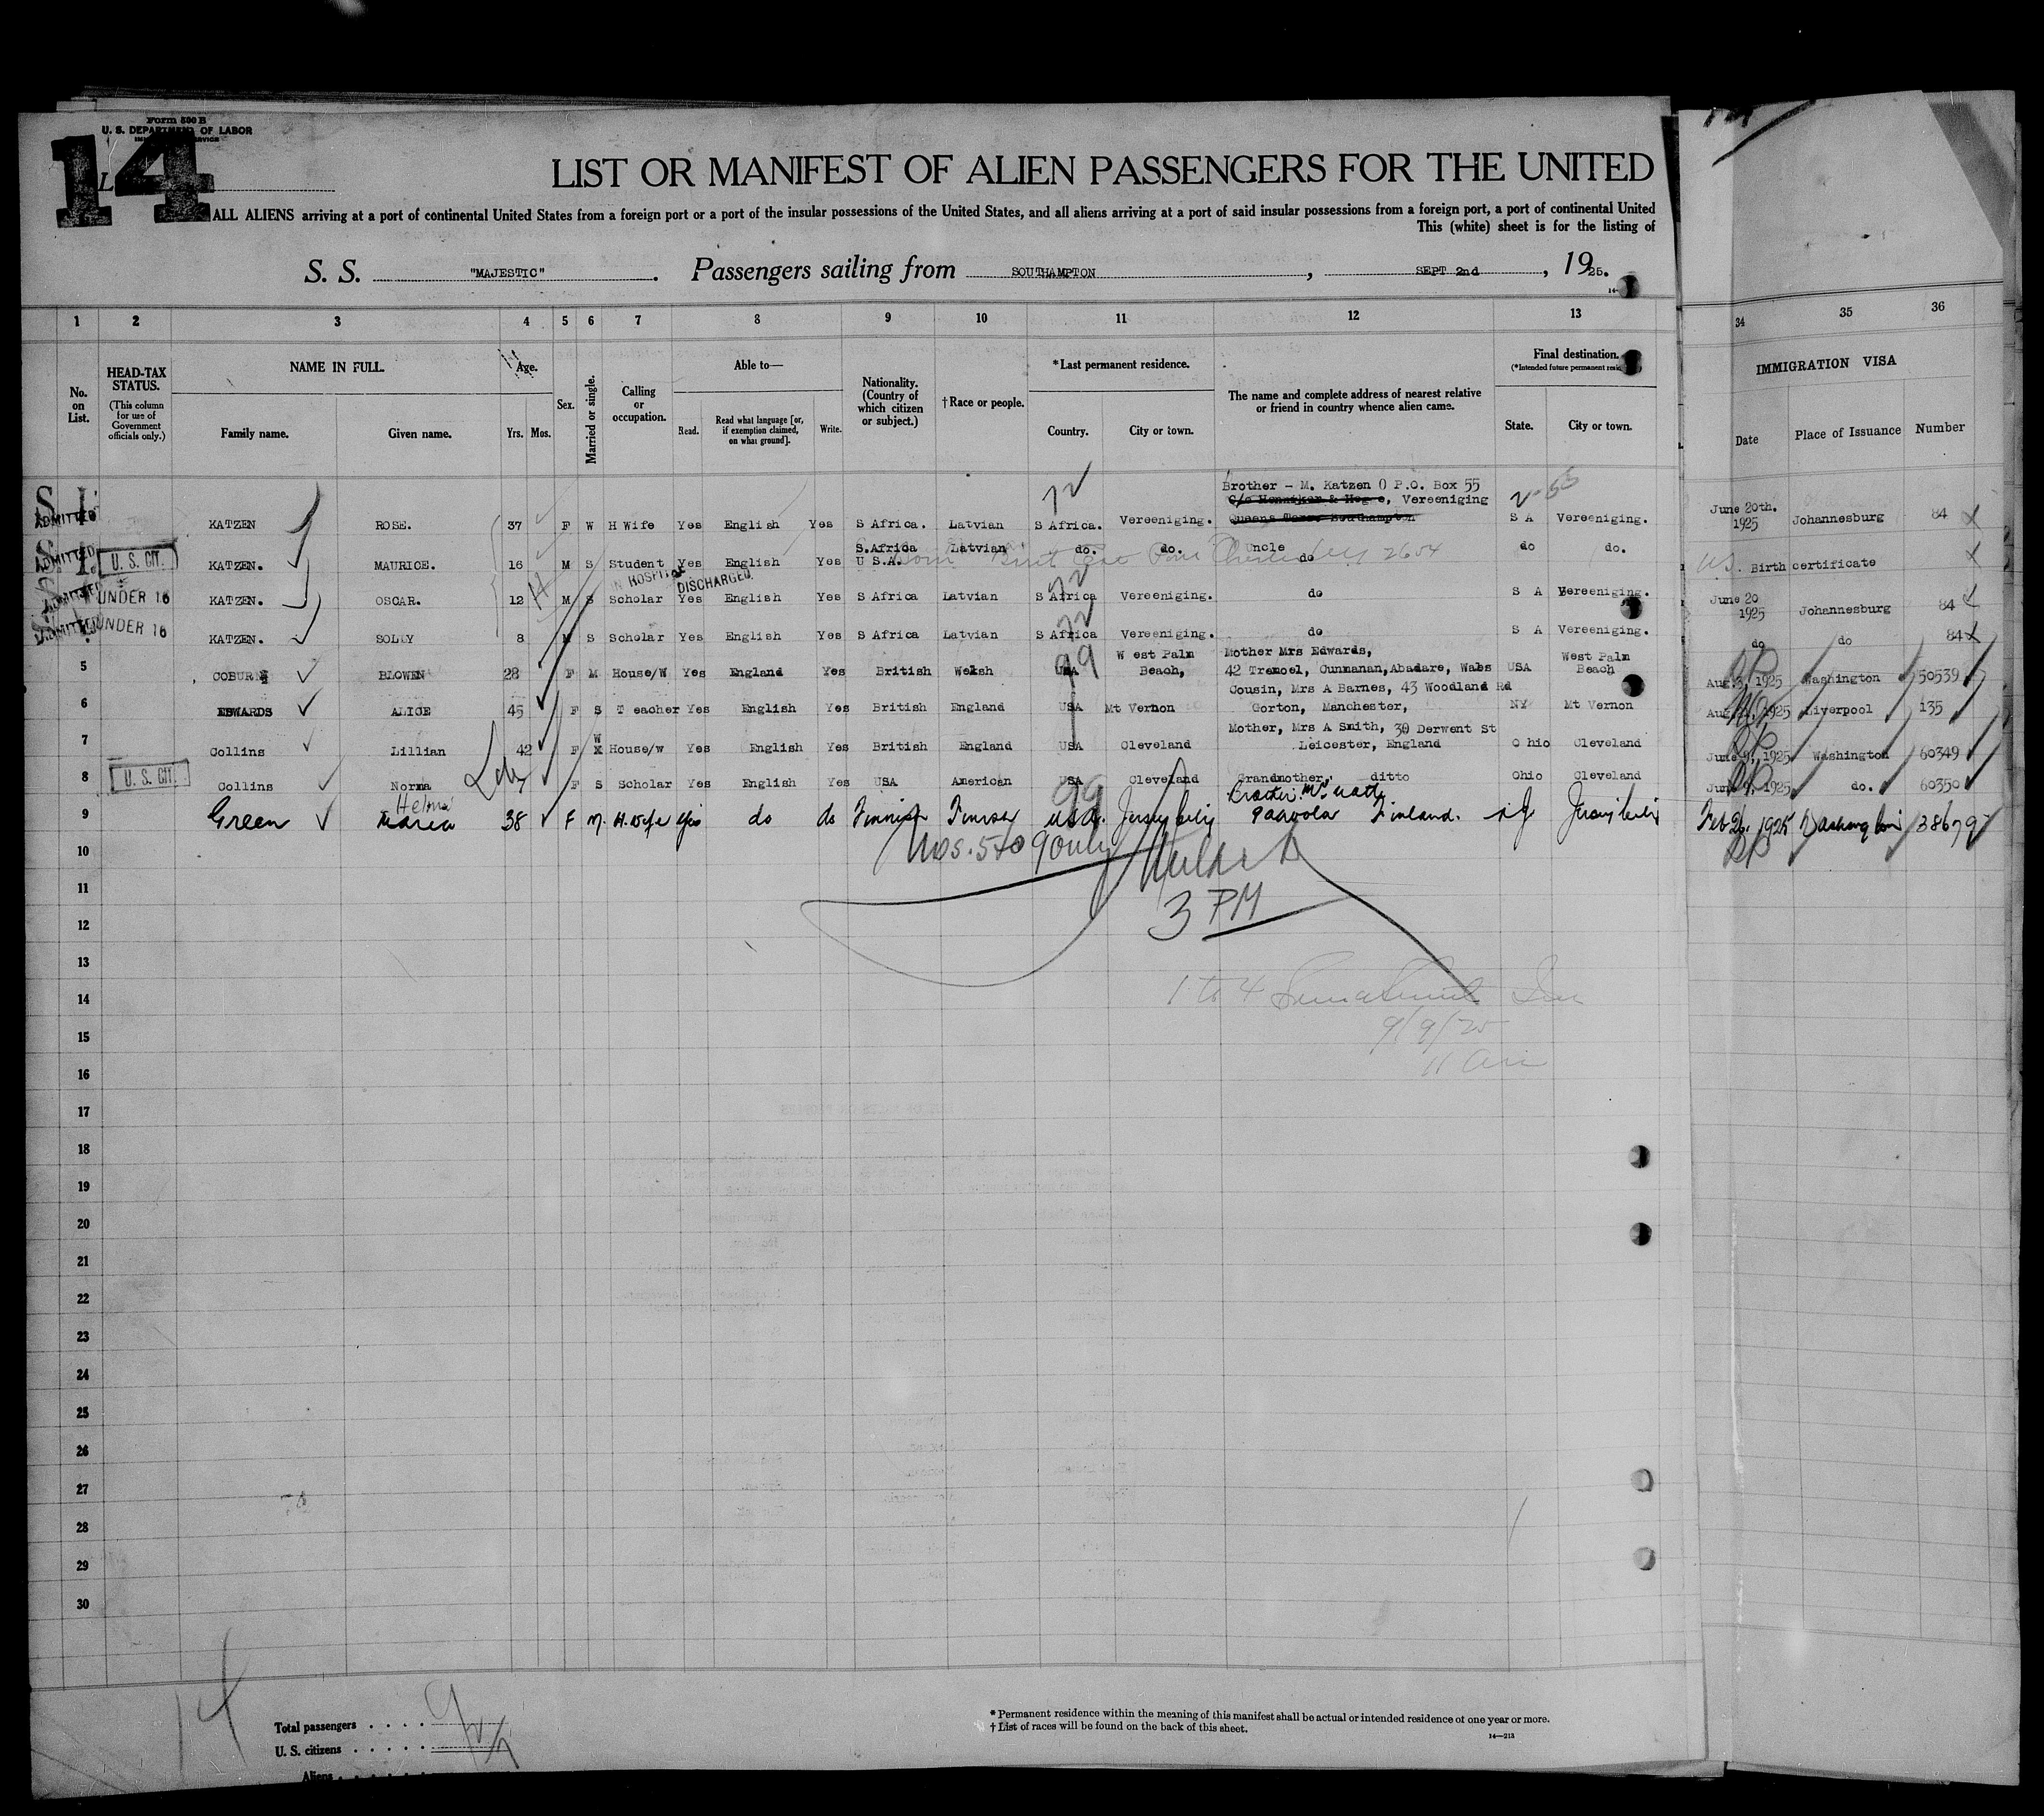 Form 500 B
U. S. DEPARTMENT OF LABOR
14
LIST OR MANIFEST OF ALIEN PASSENGERS FOR THE UNITED
ALL ALIENS arriving at a port of continental United States from a foreign port or a port of the insular possessions of the United States, and all aliens arriving at a port of said insular possessions from a foreign port, a port of continental United
This (white) sheet is for the listing of
S. S. "MAJESTIC". Passengers sailing from SOUTHAMPTON, SEPT 2nd, 1925.
1 2 3 4 5 6 7 8 9 10 11 12 13 34 35 36
No. on List.
HEAD-TAX STATUS.
(This column for use of Government officials only.)
NAME IN FULL.
Family name. Given name.
Age.
Yrs. Mos.
Sex.
Married or single.
Calling or occupation.
Able to—
Read. Read what language [or, if exemption claimed, on what ground]. Write.
Nationality. (Country of which citizen or subject.)
† Race or people.
* Last permanent residence.
Country. City or town.
The name and complete address of nearest relative or friend in country whence alien came.
Final destination.
State. City or town.
IMMIGRATION VISA
Date Place of Issuance Number
Brother - M. Katzen P.O. Box 55
C/o Henniker & Hogge, Vereeniging
S I ADMITTED KATZEN ROSE. 37 F W H Wife Yes English Yes S Africa. Latvian S Africa. Vereeniging. Queens Terr. Southampton S A Vereeniging. June 20th. 1925 Johannesburg 84
S.Africa Latvian do. do. Uncle do do.
S I ADMITTED U. S. CIT. KATZEN. MAURICE. 16 M S Student Yes English Yes U S A. do U.S. Birth certificate
IN HOSPITAL DISCHARGED
ADMITTED UNDER 16 KATZEN. OSCAR. 12 M S Scholar Yes English Yes S Africa Latvian S Africa Vereeniging. do S A Vereeniging. June 20 1925 Johannesburg 84
ADMITTED UNDER 16 KATZEN. SOLLY 8 M S Scholar Yes English Yes S Africa Latvian S Africa Vereeniging. do S A Vereeniging. do do 84
West Palm Mother Mrs Edwards, West Palm
5 COBURN BLOWEN 28 F M House/W Yes England Yes British Welsh USA Beach, 42 Tremoel, Cunmanan, Abadare, Wales USA Beach Aug.3, 1925 Washington 50539
Cousin, Mrs A Barnes, 43 Woodland Rd
6 EDWARDS ALICE 45 F S Teacher Yes English Yes British England USA Mt Vernon Gorton, Manchester, NY Mt Vernon 1925 Liverpool 135
Mother, Mrs A Smith, 30 Derwent St
7 Collins Lillian 42 F W House/w Yes English Yes British England USA Cleveland Leicester, England Ohio Cleveland June 9, 1925 Washington 60349
8 U. S. CIT. Collins Norma 7 F S Scholar Yes English Yes USA American USA Cleveland Grandmother, ditto Ohio Cleveland June 9, 1925 do. 60350
Helma
9 Green Maria 38 F M. H. Wife Yes do do Finnish Finnish USA. Jersey City Paavola Finland. NJ Jersey City Feb 26, 1925 Washington 38679
10
Nos. 5 to 9 only
11
3 PM
12
13
14
1 to 4
15
9/9/25
16
17
18
19
20
21
22
23
24
25
26
27
28
29
30
14
Total passengers . . . . 9
U. S. citizens . . . . .
Aliens
* Permanent residence within the meaning of this manifest shall be actual or intended residence of one year or more.
† List of races will be found on the back of this sheet.
14—213